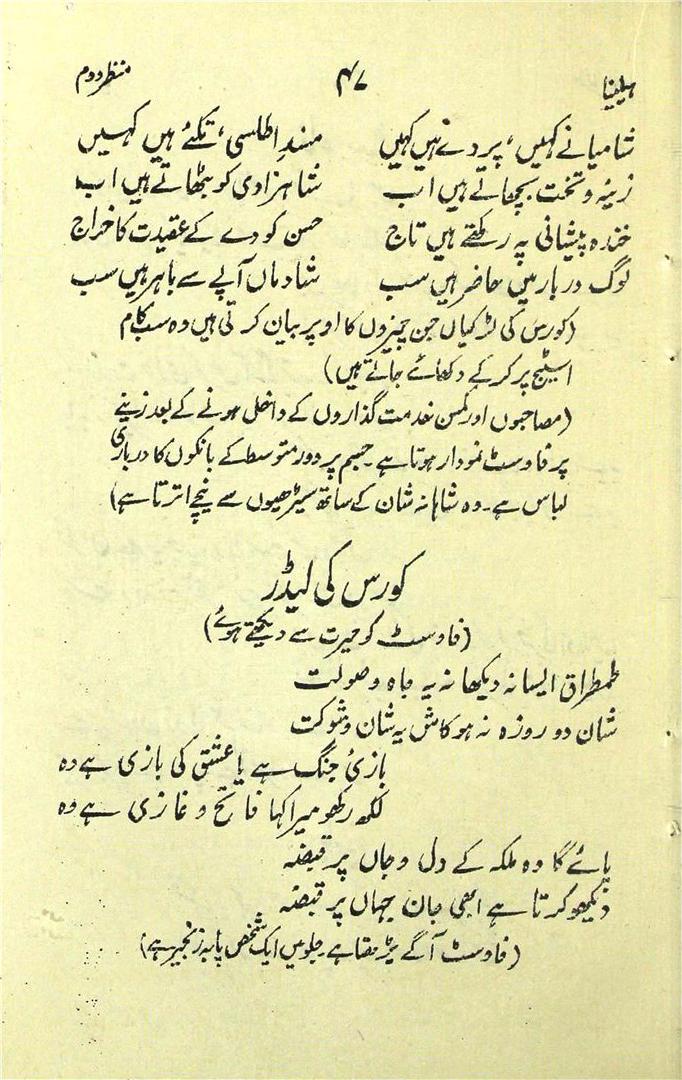 ہیلینا ۴۷ منظر دوم
شامیانے کہیں، پردے ہیں کہیں مسندِ اطلسی، تکئے ہیں کہیں
زینہ و تخت بچھاتے ہیں اب شاہزادی کو بٹھاتے ہیں اب
خندہ پیشانی پہ رکھتے ہیں تاج حسن کو دے کے عقیدت کا خراج
لوگ دربار میں حاضر ہیں سب شادماں آپے سے باہر ہیں سب
(کورس کی لڑکیاں جن چیزوں کا اوپر بیان کرتی ہیں وہ سب کام
اسٹیج پر کر کے دکھائے جاتے ہیں)
(مصاحبوں اور کمسن خدمت گذاروں کے داخلی ہونے کے بعد زینے
پر فاوسٹ نمودار ہوتا ہے۔ جسم پر دور متوسط کے بانکوں کا درباری
لباس ہے۔ وہ شاہانہ شان کے ساتھ سیڑھیوں سے نیچے اترتا ہے)
کورس کی لیڈر
(فاوسٹ کو حیرت سے دیکھتے ہوئے)
طمطراق ایسا نہ دیکھا نہ یہ جاہ و صولت
شان دو روزہ نہ ہو کاش یہ شان و شوکت
بازیٔ جنگ ہے یا عشق کی بازی ہے وہ
لکھ رکھو میرا کہا فاتح و غازی ہے وہ
پائے گا وہ ملکہ کے دل و جاں پر قبضہ
دیکھو کرتا ہے ابھی جان جہاں پر قبضہ
(فاوسٹ آگے بڑھتا ہے۔ جلو میں ایک شخص پابہ زنجیر ہے)